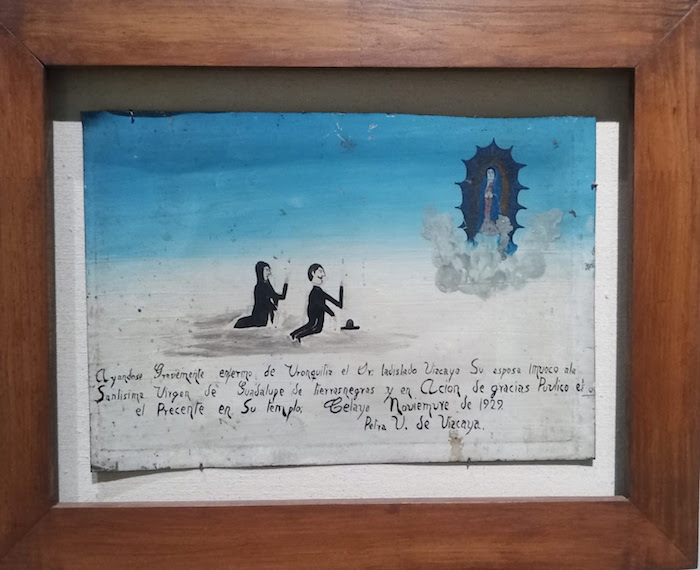 Ayandose Gravemente enfermo, de Vronquitis el Sr. ladislado Vizcaya Su esposa Imvoco ala
Santisima Virgen de Guadalupe de tierrasnegras y en Acion de gracias Puvlico
el Precente en Su templo. Celaya Noviemvre de 1929
Petra V. de Vizcaya.